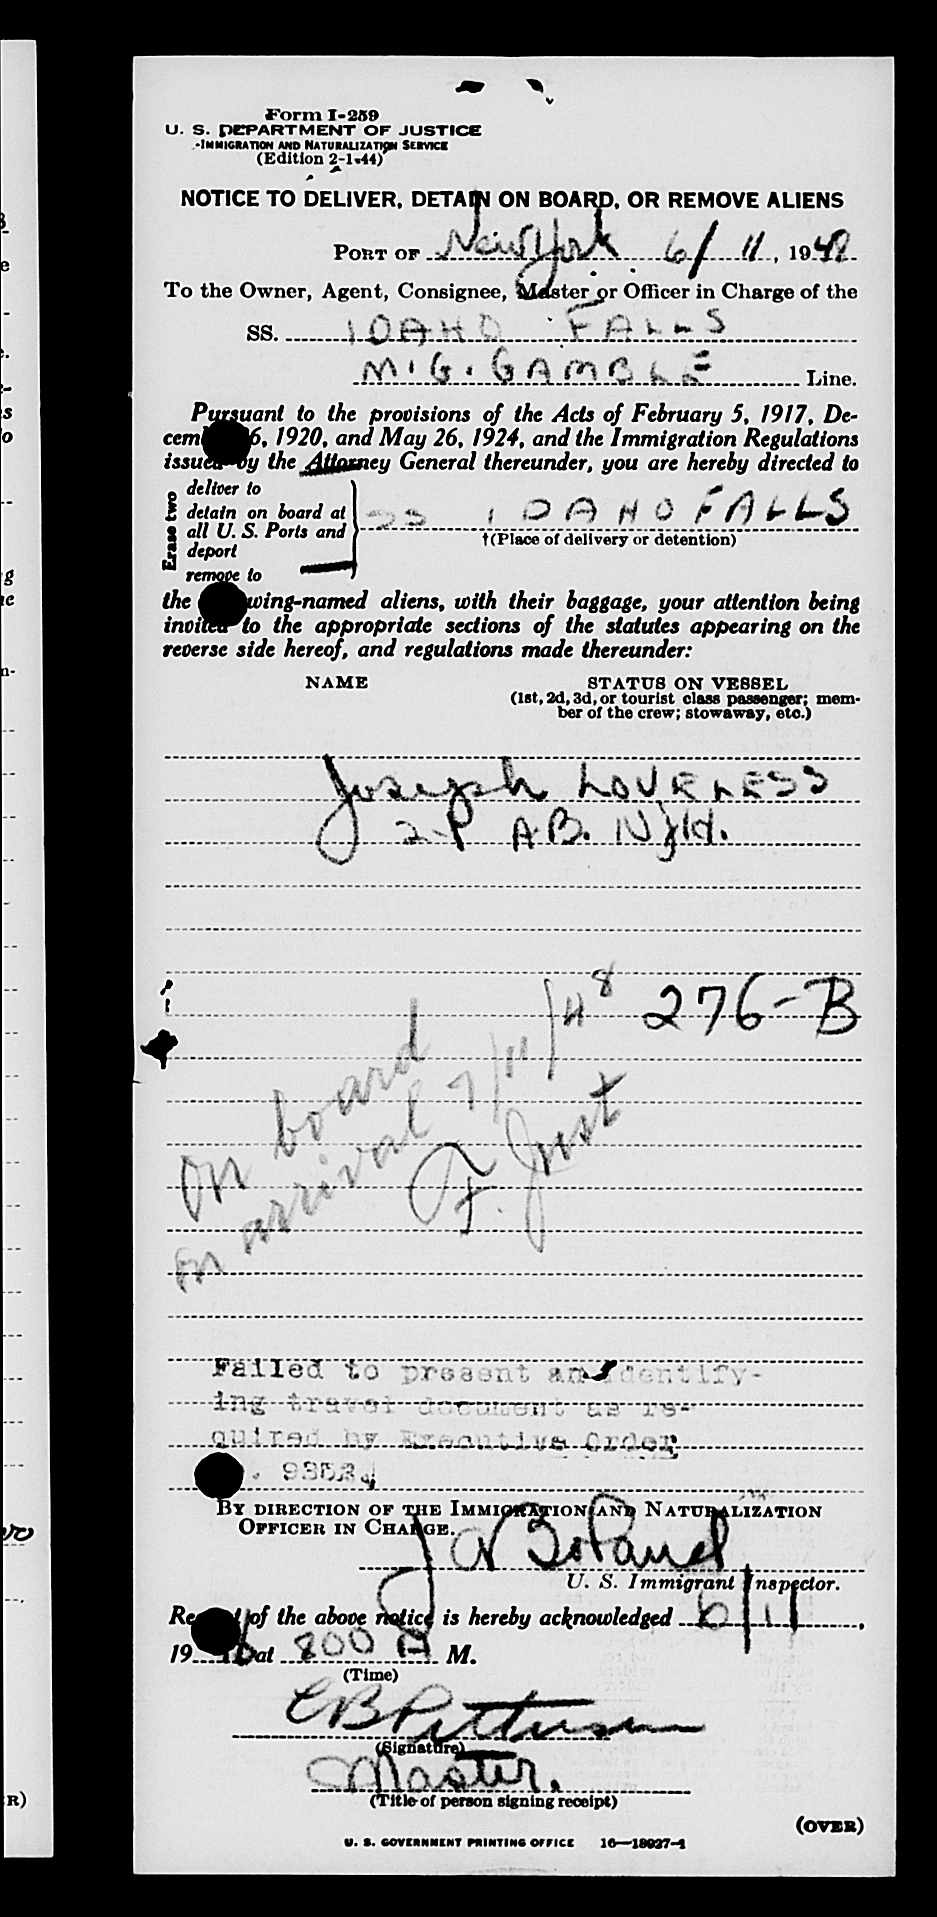 Form I-259
U. S. DEPARTMENT OF JUSTICE
IMMIGRATION AND NATURALIZATION SERVICE
(Edition 2-1-44)
NOTICE TO DELIVER, DETAIN ON BOARD, OR REMOVE ALIENS
PORT OF New York 6/11, 1948
To the Owner, Agent, Consignee, Master or Officer in Charge of the
SS. IDAHO FALLS
M. G. GAMBLE Line.
Pursuant to the provisions of the Acts of February 5, 1917, De-
cem 6, 1920, and May 26, 1924, and the Immigration Regulations
issued by the Attorney General thereunder, you are hereby directed to
Erase two
deliver to
detain on board at
all U. S. Ports and
deport
remove to
SS IDAHO FALLS
†(Place of delivery or detention)
the wing-named aliens, with their baggage, your attention being
invited to the appropriate sections of the statutes appearing on the
reverse side hereof, and regulations made thereunder:
NAME STATUS ON VESSEL
(1st, 2d, 3d, or tourist class passenger; mem-
ber of the crew; stowaway, etc.)
Joseph LOVELESS
2-P AB.
276-B
On board
on arrival 7/11/48
F. Just
Failed to present an identify-
ing travel document as re-
quired by Executive Order
. 9352.
BY DIRECTION OF THE IMMIGRATION AND NATURALIZATION
OFFICER IN CHARGE.
J A Boland
U. S. Immigrant Inspector.
Re of the above notice is hereby acknowledged 6/11,
19 at 800 A M.
(Time)
(Signature)
Master.
(Title of person signing receipt)
(OVER)
U. S. GOVERNMENT PRINTING OFFICE 16—18927-1
R)